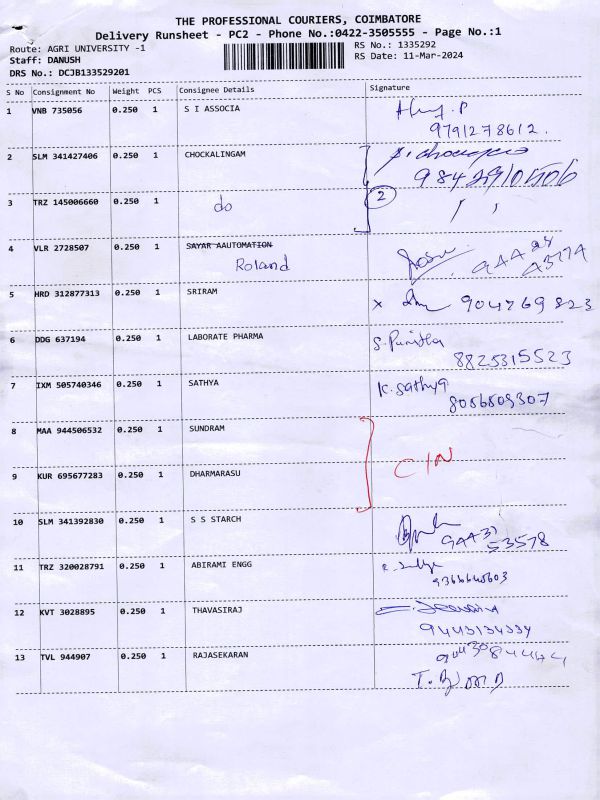 THE PROFESSIONAL COURIERS, COIMBATORE
Delivery Runsheet - PC2 - Phone No.:0422-3505555 - Page No.:1
Route: AGRI UNIVERSITY -1
RS No.: 1335292
Staff: DANUSH
RS Date: 11-Mar-2024
DRS No.: DCJB133529201
S No Consignment No Weight PCS Consignee Details Signature
1 VNB 735056 0.250 1 S I ASSOCIA
9791278612.
2 SLM 341427406 0.250 1 CHOCKALINGAM
3 TRZ 145006660 0.250 1 do 2 ''
4 VLR 2728507 0.250 1 SAYAR AAUTOMATION
Roland
5 HRD 312877313 0.250 1 SRIRAM x 904769823
6 DDG 637194 0.250 1 LABORATE PHARMA S. Punitha
8825315523
7 IXM 505740346 0.250 1 SATHYA K. Sathya
8056509307
8 MAA 944506532 0.250 1 SUNDRAM
C/N
9 KUR 695677283 0.250 1 DHARMARASU
10 SLM 341392830 0.250 1 S S STARCH
94437
53578
11 TRZ 320028791 0.250 1 ABIRAMI ENGG
12 KVT 3028895 0.250 1 THAVASIRAJ
9443134334
13 TVL 944907 0.250 1 RAJASEKARAN